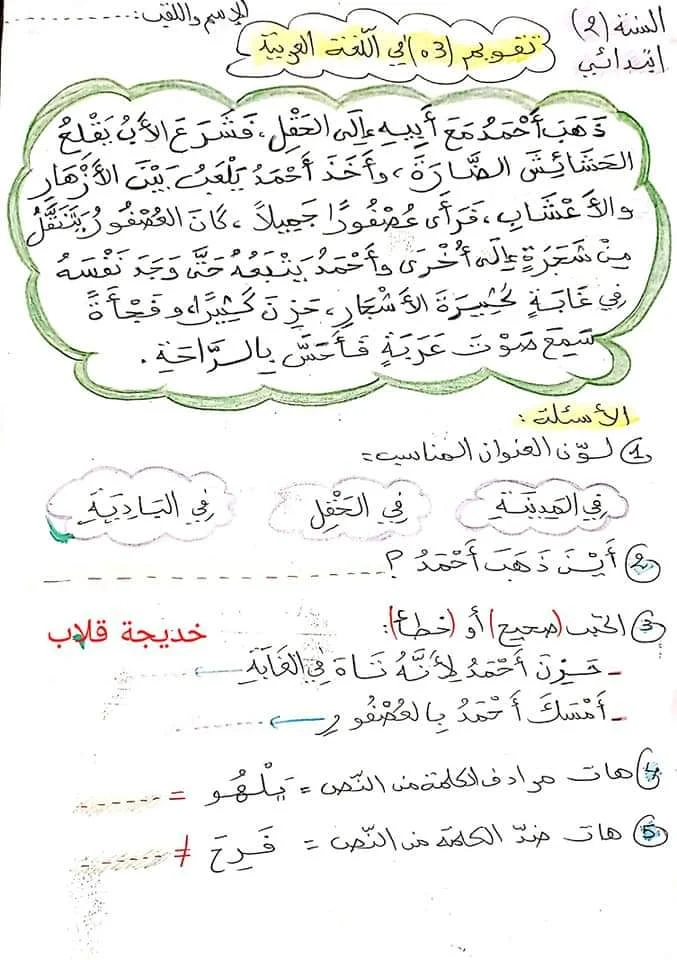 السنة (2)
ابتدائي
الإسم واللقب:
تقويم (03) في اللّغة العربية
ذَهَبَ أَحْمَدُ مَعَ أَبِيهِ إِلَى الحَقْلِ، فَشَرَعَ الأَبُ يَقْلَعُ
الحَشَائِشَ الضَّارَةَ، وَأَخَذَ أَحْمَدُ يَلْعَبُ بَيْنَ الأَزْهَارِ
والأَعْشَابِ، فَرَأَى عُصْفُورًا جَمِيلاً، كَانَ العُصْفُورُ يَتَنَقَّلُ
مِنْ شَجَرَةٍ إِلَى أُخْرَى وأَحْمَدُ يَتْبَعُهُ حَتَّى وَجَدَ نَفْسَهُ
فِي غَابَةٍ كَثِيرَةَ الأَشْجَارِ، حَزِنَ كَثِيرًا، وفَجْأَةً
سَمِعَ صَوْتَ عَرَبَةٍ فَأَحَسَّ بِالرَّاحَةِ.
الأسئلة:
1 لوّن العنوان المناسب:
فِي المَدِينَةِ فِي الحَقْلِ فِي البَادِيَةِ
2 أَيْنَ ذَهَبَ أَحْمَدُ؟
3 اكتب (صحيح) أو (خطأ):
خديجة قلاب
- حَزِنَ أَحْمَدُ لِأَنَّهُ تَاهَ فِي الغَابَةِ
- أَمْسَكَ أَحْمَدُ بِالعُصْفُورِ
4 هات مرادف الكلمة من النّص = يَلْهُو =
5 هات ضدّ الكلمة من النّص = فَرِحَ ≠